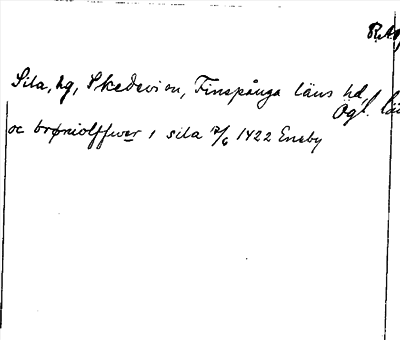 R.A.
Sila, hg, Skedevi sn, Finspånga läns hd,
Ögl. lä
oc brøniolffwer i sila 7/6 1422 Eneby